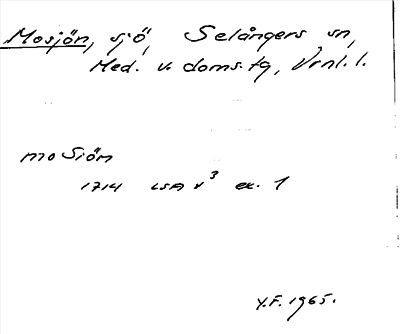 Mosjön, sjö, Selångers sn,
Med. v. doms.tg, Vrnl. l.
mo Siön
1714 LSA v³ ex. 1
Y.F. 1965.